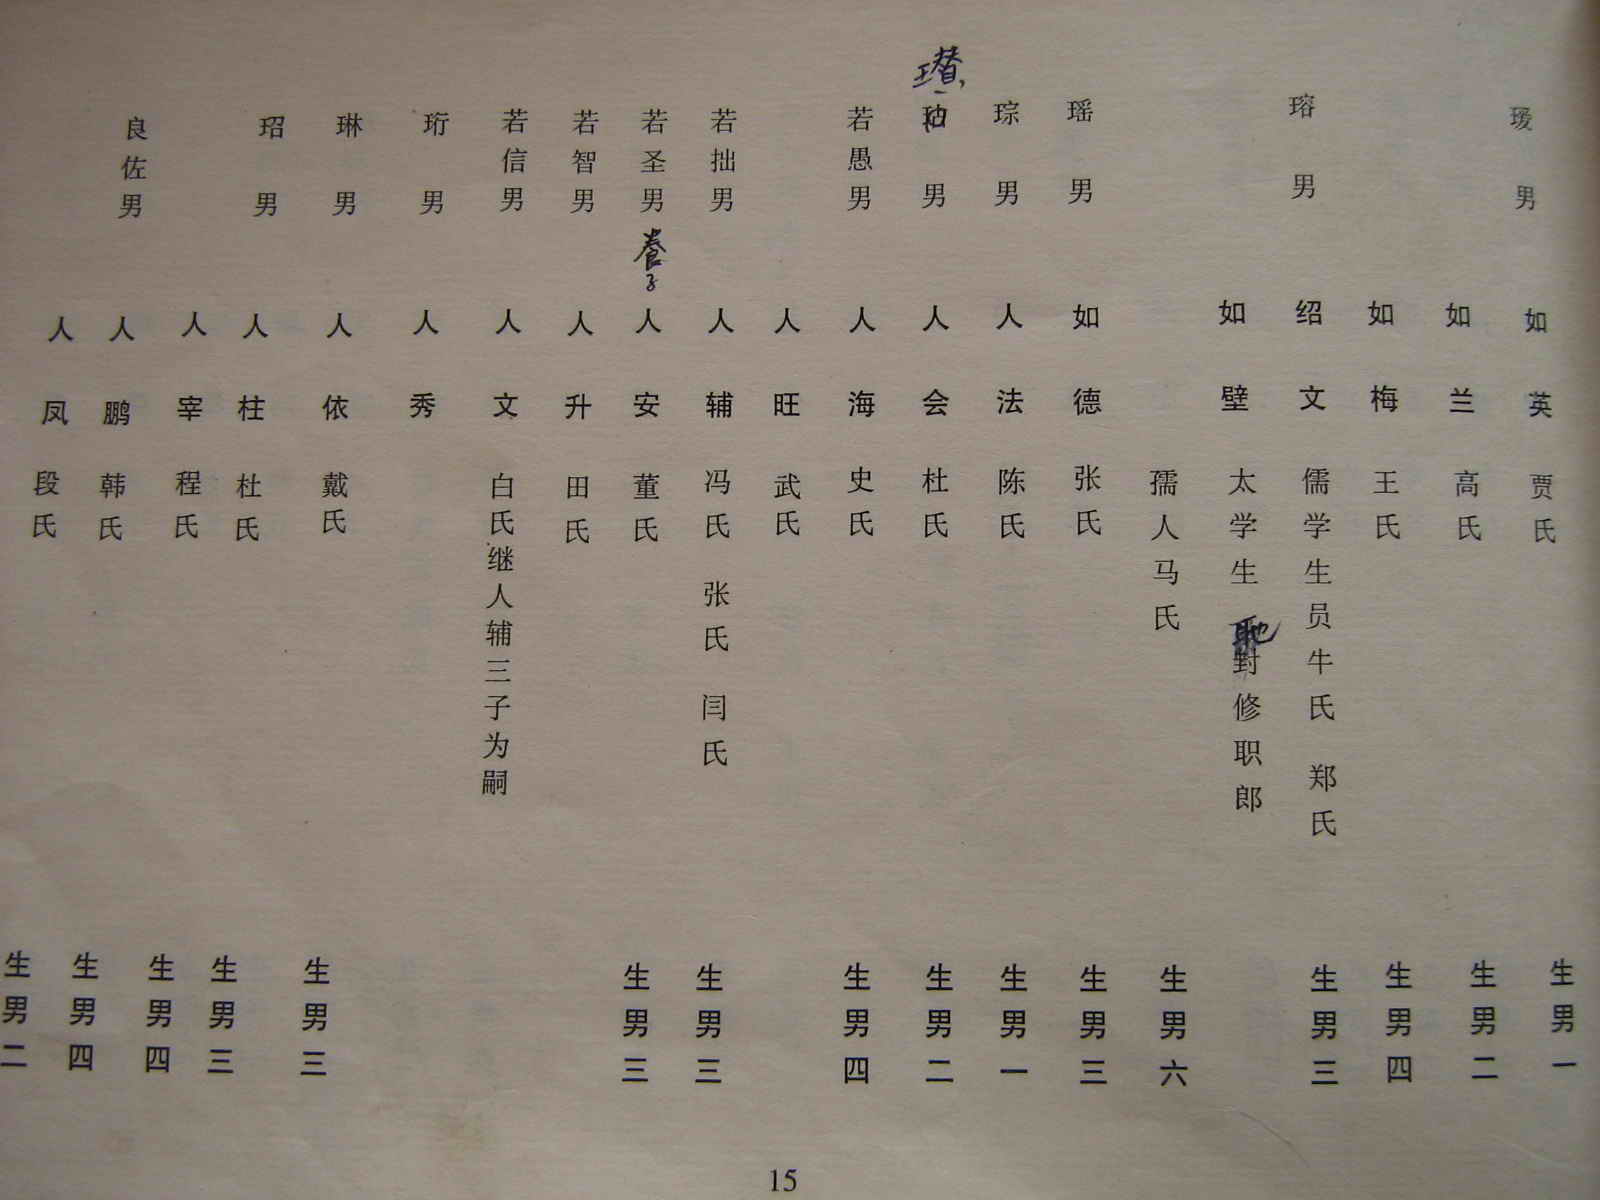 瑷男 如英 贾氏 生男一
如兰 高氏 生男二
如梅 王氏 生男四
瑢男 绍文 儒学生员牛氏 郑氏 生男三
如壁 太学生 驰封修职郎
孺人马氏 生男六
瑶男 如德 张氏 生男三
琮男 人法 陈氏 生男一
男 人会 杜氏 生男二
若愚男 人海 史氏 生男四
人旺 武氏
若拙男 人辅 冯氏 张氏 闫氏 生男三
若圣男 养子 人安 董氏 生男三
若智男 人升 田氏
若信男 人文 白氏继人辅三子为嗣
珩男 人秀
琳男 人依 戴氏 生男三
玿男 人柱 杜氏 生男三
人宰 程氏 生男四
良佐男 人鹏 韩氏 生男四
人凤 段氏 生男二
15